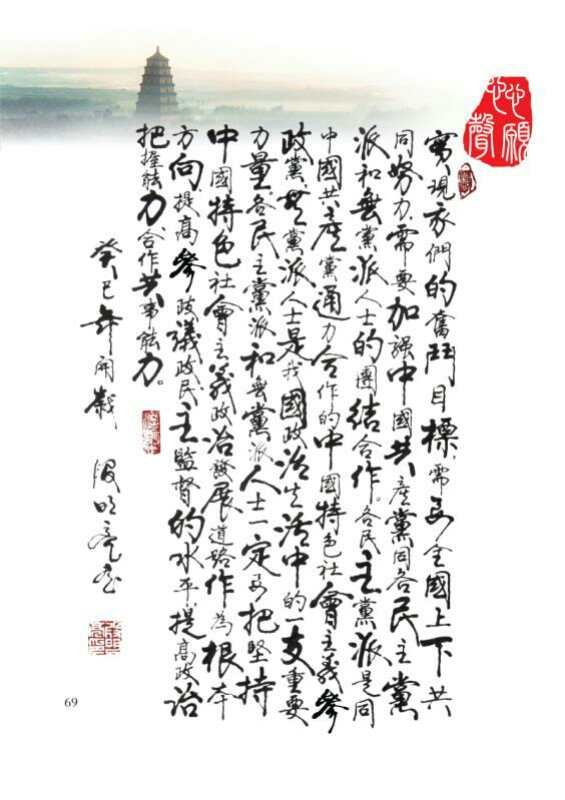 心願
聲
實現我們的奮鬥目標需要全國上下共
同努力、需要加強中國共產黨同各民主黨
派和無黨派人士的團結合作。各民主黨派是同
中國共產黨通力合作的中國特色社會主義參
政黨、無黨派人士是我國政治生活中的一支重要
力量、各民主黨派和無黨派人士一定要把堅持
中國特色社會主義政治發展道路作為根本
方向、提高參政議政民主監督的水平、提高政治
把握能力、合作共事能力。
癸巳年開歲
69